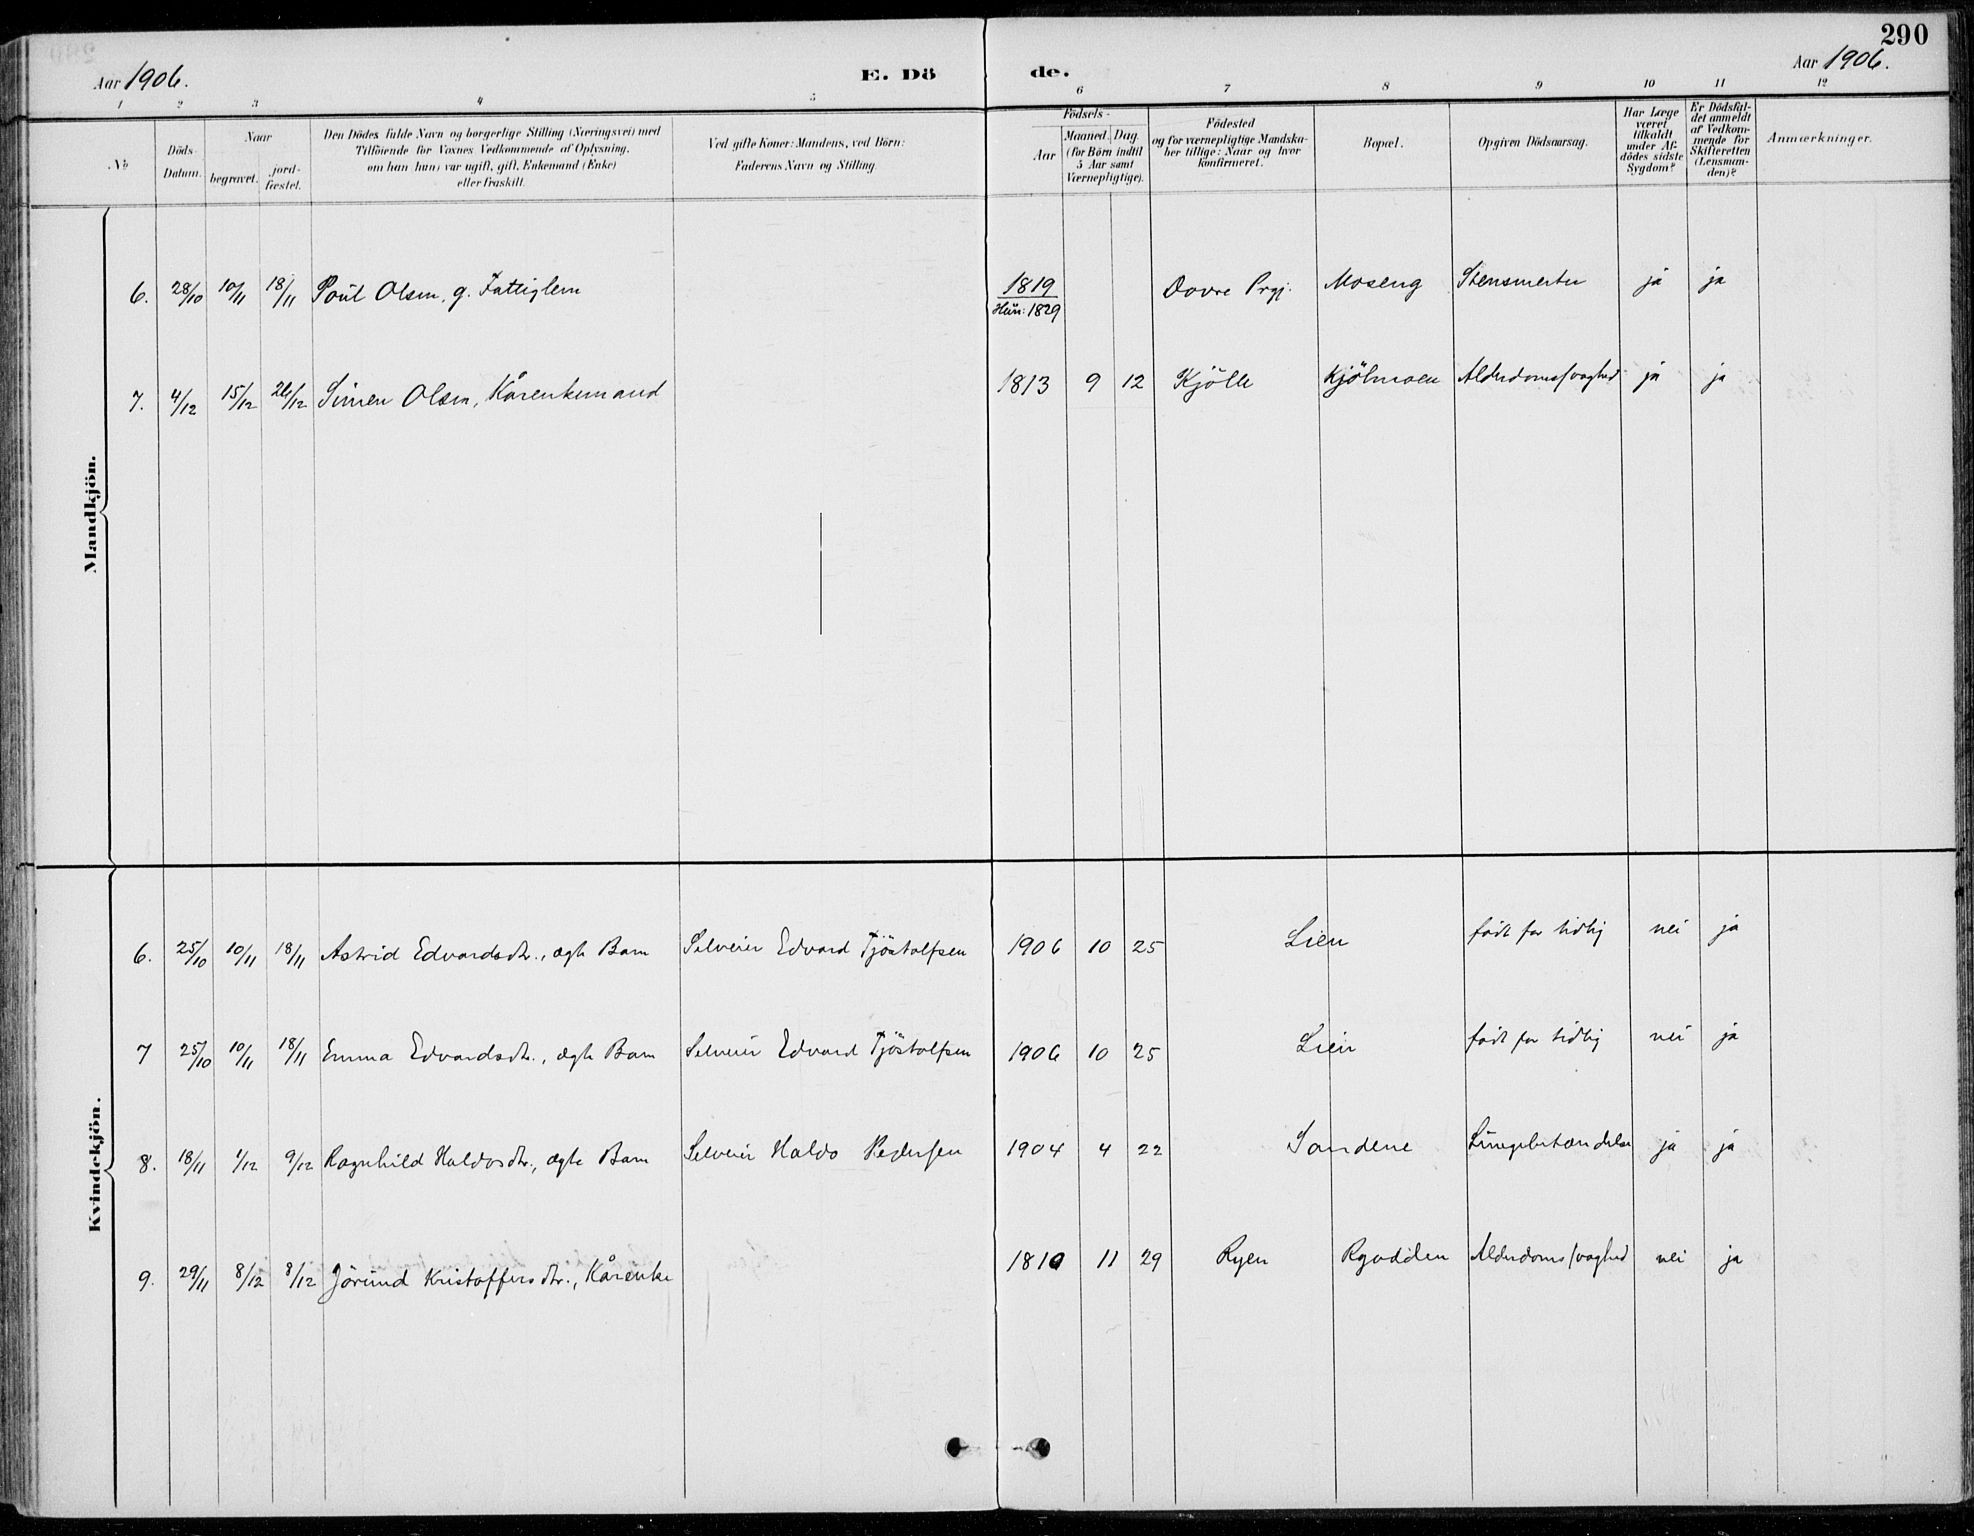 290
Aar 1906. E. Dö de. Aar 1906.
1 2 3 4 5 6 7 8 9 10 11 12
No
Döds-
Datum.
Naar
begravet. jord-
fæstet.
Den Dödes fulde Navn og borgerlige Stilling (Næringsvei) med
Tilföiende for Voxnes Vedkommende af Oplysning,
om han (hun) var ugift, gift, Enkemand (Enke)
eller fraskilt.
Ved gifte Koner: Mandens, ved Börn:
Faderens Navn og Stilling.
Födsels-
Aar
Maaned. Dag.
(for Börn indtil
5 Aar samt
Værnepligtige).
Födested
og for værnepligtige Mandska-
ber tillige: Naar og hvor
konfirmeret.
Bopæl.
Opgiven Dödsaarsag.
Har Læge
været
tilkaldt
under Af-
dödes sidste
Sygdom?
Er Dödsfal-
det anmeldt
af Vedkom-
mende for
Skifteretten
(Lensman-
den)?
Anmærkninger.
Mandkjön.
6. 28/10 10/11 18/11 Poul Olsen, g. Fattiglem 1819 Dovre Prgj. Moseng Stensmerter ja ja
Hun: 1829
7. 4/12 15/12 26/12 Simen Olsen, Kårenkemand 1813 9 12 Kjölle Kjölmoen Alderdomssvaghed ja ja
Kvindekjön.
6. 25/10 10/11 18/11 Astrid Edvardsdtr., ægte Barn Selveier Edvard Tjöstolfsen 1906 10 25 Lien født for tidlig nei ja
7 25/10 10/11 18/11 Emma Edvardsdtr., ægte Barn Selveier Edvard Tjöstolfsen 1906 10 25 Lien født for tidlig nei ja
8. 18/11 1/12 9/12 Ragnhild Haldosdtr., ægte Barn Selveier Haldo Pedersen 1904 4 22 Sandene Lungebetændelse ja ja
9. 29/11 8/12 8/12 Jörund Kristoffersdtr., Kårenke 1810 11 29 Ryen Rygdden Alderdomssvaghed nei ja